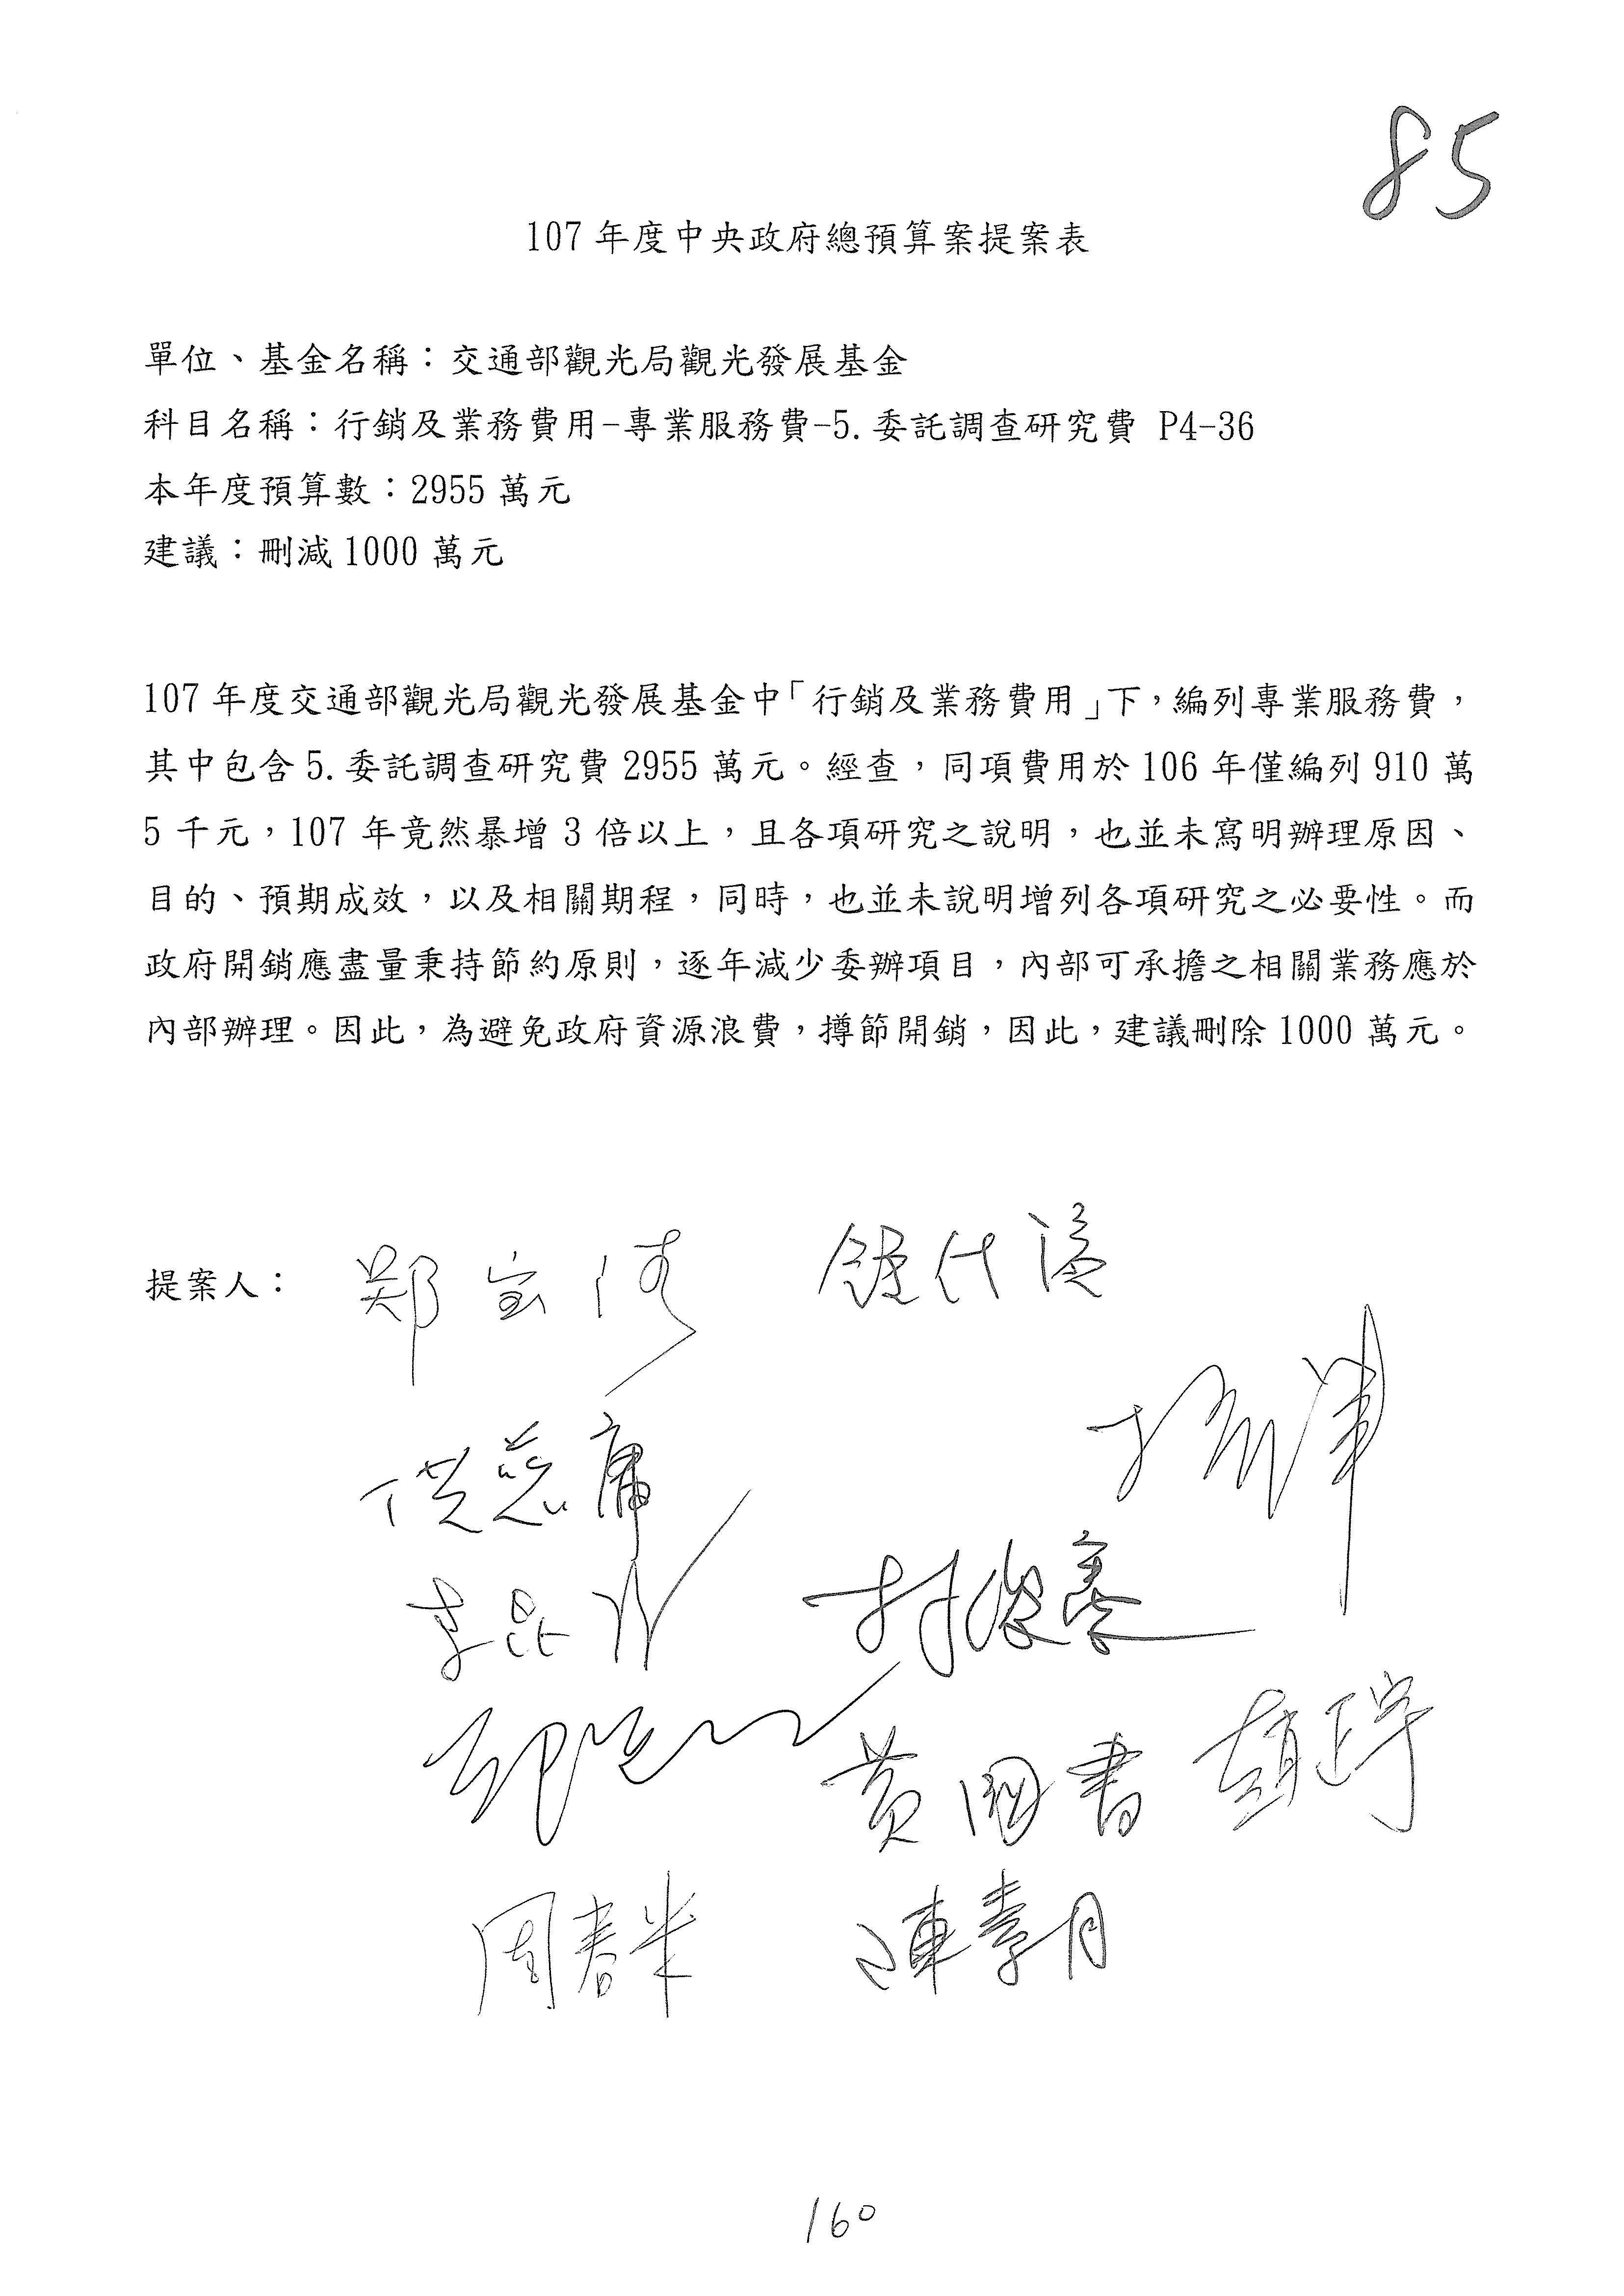 85
107 年度中央政府總預算案提案表
單位、基金名稱：交通部觀光局觀光發展基金
科目名稱：行銷及業務費用-專業服務費-5.委託調查研究費 P4-36
本年度預算數：2955 萬元
建議：刪減 1000 萬元
107 年度交通部觀光局觀光發展基金中「行銷及業務費用」下，編列專業服務費，
其中包含 5.委託調查研究費 2955 萬元。經查，同項費用於 106 年僅編列 910 萬
5 千元，107 年竟然暴增 3 倍以上，且各項研究之說明，也並未寫明辦理原因、
目的、預期成效，以及相關期程，同時，也並未說明增列各項研究之必要性。而
政府開銷應盡量秉持節約原則，逐年減少委辦項目，內部可承擔之相關業務應於
內部辦理。因此，為避免政府資源浪費，撙節開銷，因此，建議刪除 1000 萬元。
提案人：
鄭宝清
洪慈庸
林俊憲
黃國書 趙正宇
周春米 陳素月
160